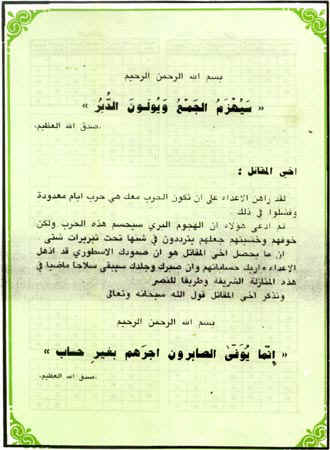 بسم الله الرحمن الرحيم
« سَيُهْزَمُ الجَمْعُ وَيُولونَ الدُّبُرَ »
صدق الله العظيم.
اخي المقاتل :
لقد راهن الاعداء على ان تكون الحرب معك هي حرب ايام معدودة
وفشلوا في ذلك
ثم ادعى هؤلاء ان الهجوم البري سيحسم هذه الحرب ولكن
خوفهم وخشيتهم جعلهم يترددون في شنها تحت تبريرات شتى
ان ما يحصل اخي المقاتل هو ان صمودك الاسطوري قد اذهل
الاعداء واربك حساباتهم وان صبرك وجلدك سيبقى سلاحاً ماضياً في
هذه المنازلة الشريفة وطريقاً للنصر
وتذكر اخي المقاتل قول الله سبحانه وتعالى
بسم الله الرحمن الرحيم
« إنَّما يُوَفَّىٰ الصابرون اجرَهم بغيرِ حساب »
صدق الله العظيم.